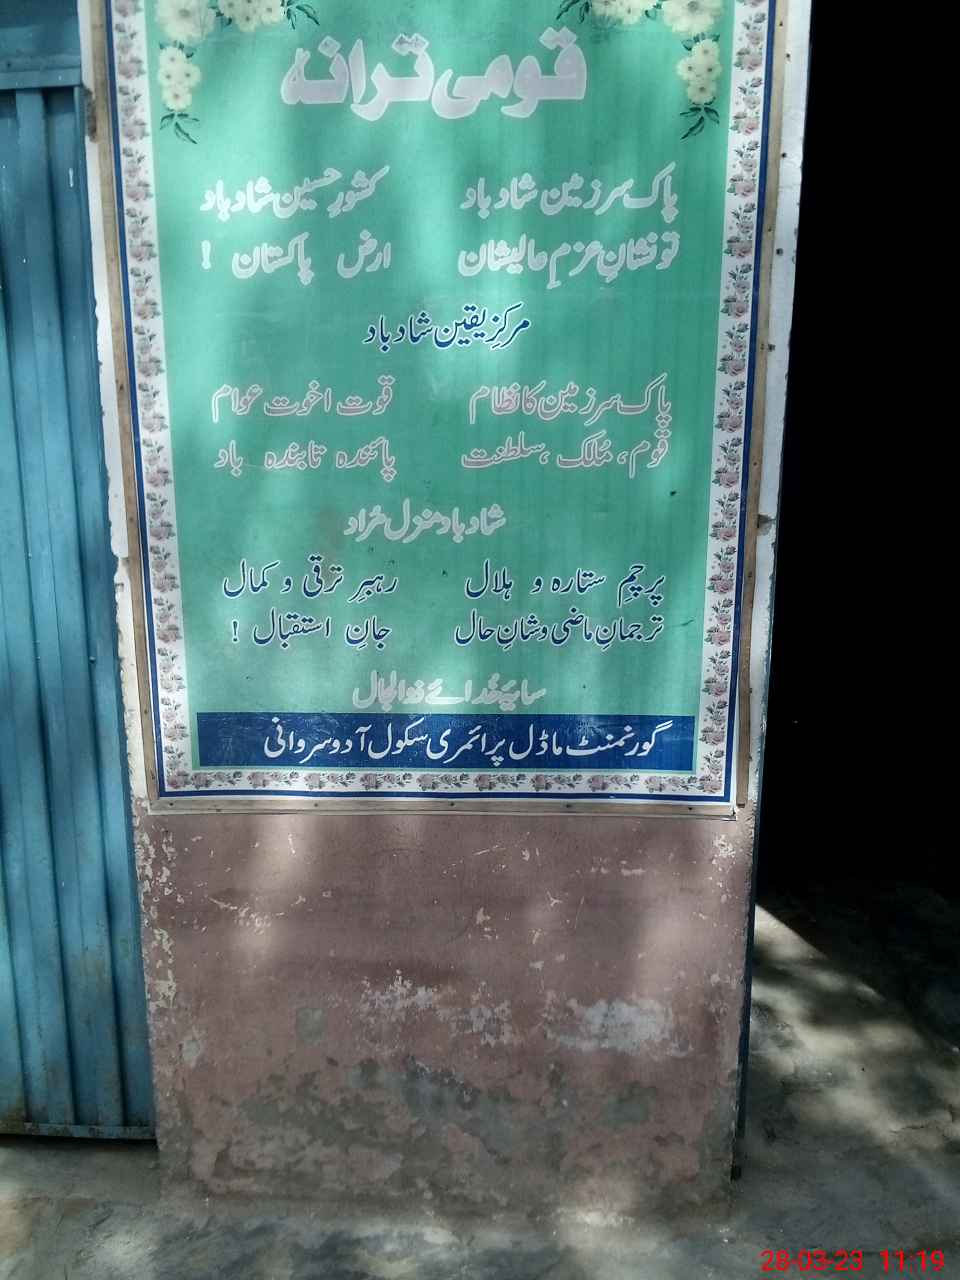 قومی ترانہ
پاک سرزمین شاد باد کشورِ حسین شاد باد
تو نشانِ عزمِ عالیشان ارض پاکستان !
مرکزِ یقین شاد باد
پاک سرزمین کا نظام قوت اخوت عوام
قوم، مُلک، سلطنت پائندہ تابندہ باد
شاد باد منزل مُراد
پرچمِ ستارہ و ہلال رہبرِ ترقی و کمال
ترجمانِ ماضی و شانِ حال جانِ استقبال !
سایۂ خُدائے ذوالجلال
گورنمنٹ ماڈل پرائمری سکول آدو سروانی
28-03-23 11:19